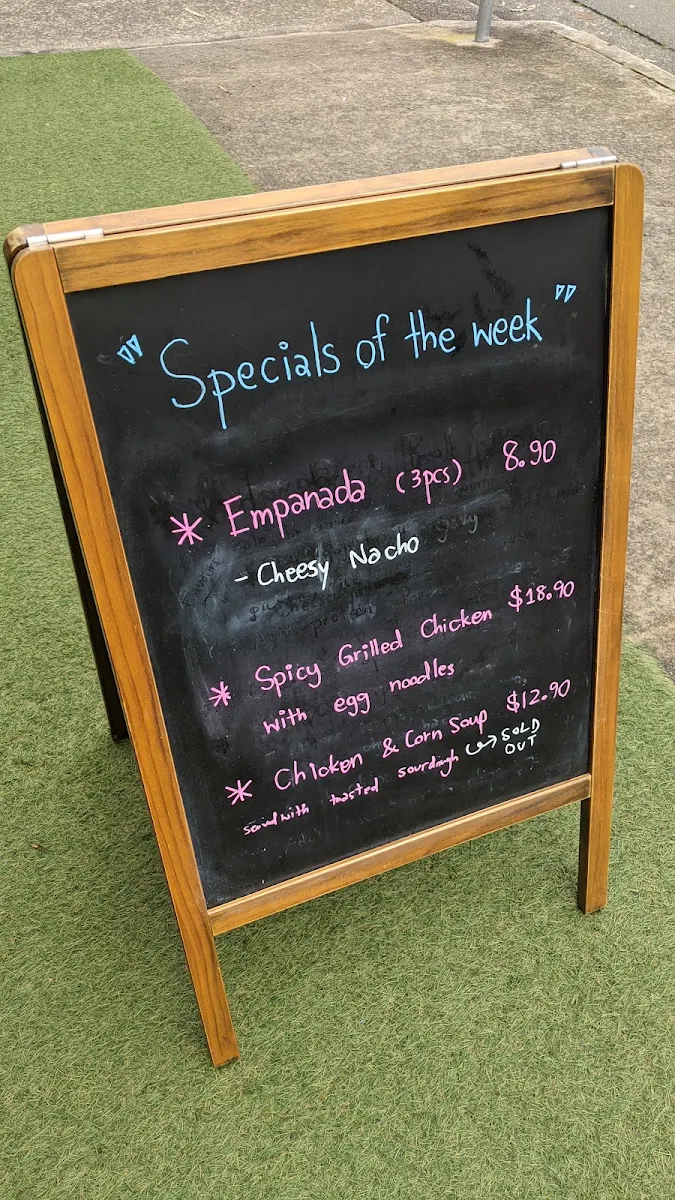 "Specials of the week"
* Empanada (3pcs) 8.90
- Cheesy Nacho
* Spicy Grilled Chicken $18.90
with egg noodles
* Chicken & Corn Soup $12.90
with toasted sourdough → SOLD
OUT